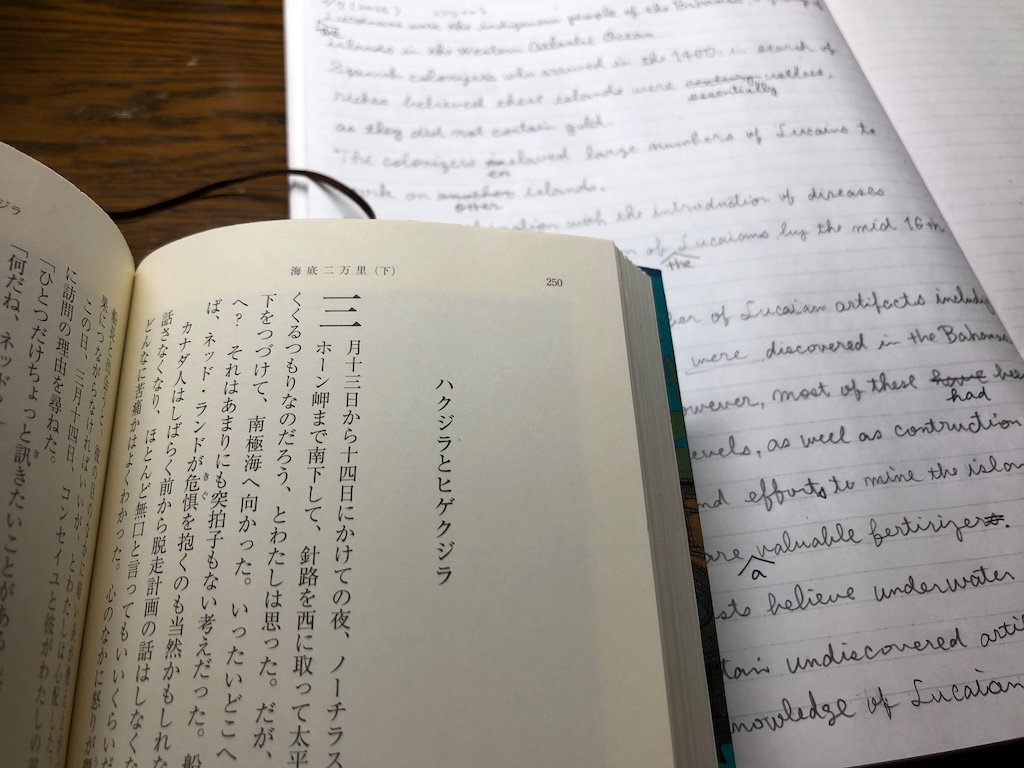 海底二万里（下）
250
ハクジラとヒゲクジラ
三月十三日から十四日にかけての夜、ノーチラス
ホーン岬まで南下して、針路を西に取って太平
くくるつもりなのだろう、とわたしは思った。だが、
下をつづけて、南極海へ向かった。いったいどこへ
へ？　それはあまりにも突拍子もない考えだった。船
ば、ネッド・ランドが危惧を抱くのも当然かもしれな
きぐ
カナダ人はしばらく前から脱走計画の話はしなくな
話さなくなり、ほとんど無口と言ってもいいくらいだ
どんなに苦痛かはよくわかった。心のなかに怒りが
この日、三月十四日、コンセイユと彼がわたしの
に訪問の理由を尋ねた。
「ひとつだけちょっと訊きたいことがある
き
「何だね、ネッド
ジラ
Lucaians were the indigenous people of the Bahamas, a group of
the
islands in the western Atlantic Ocean
Spanish colonizers who arrived in the 1400s in search of
riches believed these islands were useless,
essentially
as they did not contain gold.
The colonizers enslaved large numbers of Lucaians to
en
work on islands.
other
with the introduction of diseases
of Lucaians by the mid 16th
the
of Lucaian artifacts includ
were discovered in the Bahamas
however, most of these have bee
had
levels, as well as contruction
and efforts to mine the islan
are valuable fertilizer.
a
sts believe underwater
tain undiscovered arti
knowledge of Lucaian